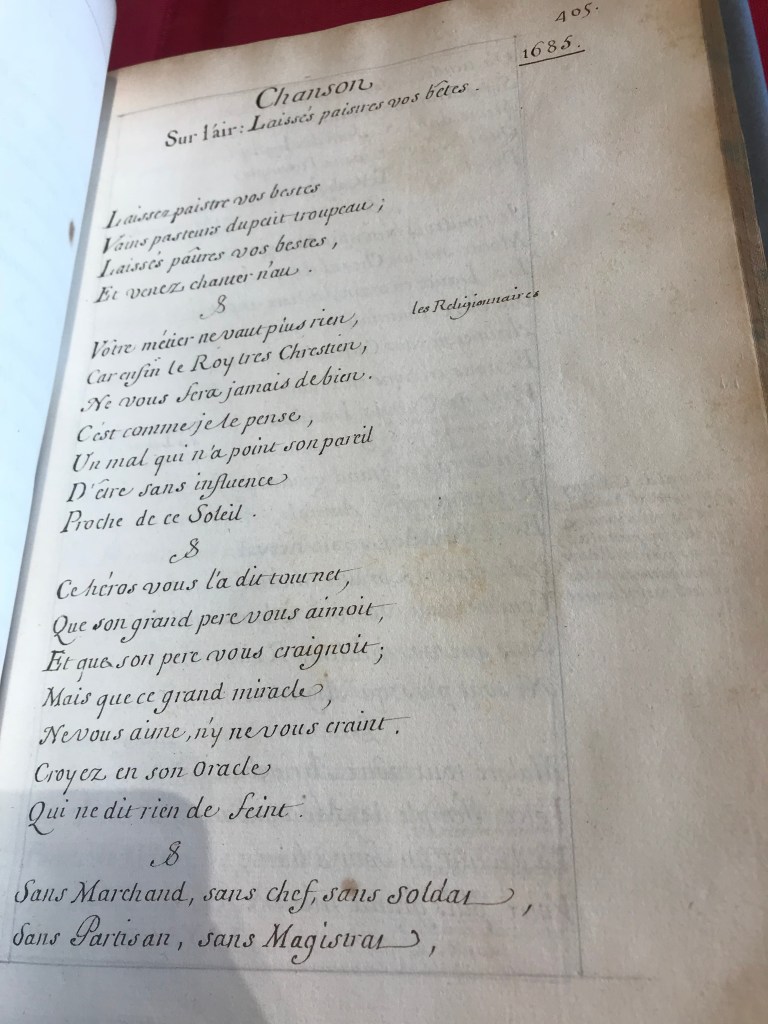 405.
1685.
Chanson
Sur l'air: Laissés paistres vos bêtes.
Laissez paistre vos bestes
Vains pasteurs du petit troupeau;
Laissés paîtres vos bestes,
Et venez chanter n'au.
Vôtre métier ne vaut plus rien,
les Religionnaires
Car enfin le Roy tres Chrestien,
Ne vous fera jamais de bien.
C'est comme je le pense,
Un mal qui n'a point son pareil
D'être sans influence
Proche de ce Soleil.
Ce héros vous l'a dit tout net,
Que son grand pere vous aimoit,
Et que son pere vous craignoit;
Mais que ce grand miracle,
Ne vous aime, n'y ne vous craint.
Croyez en son Oracle
Qui ne dit rien de feint.
Sans Marchand, sans chef, sans soldat,
Sans Partisan, sans Magistrat,